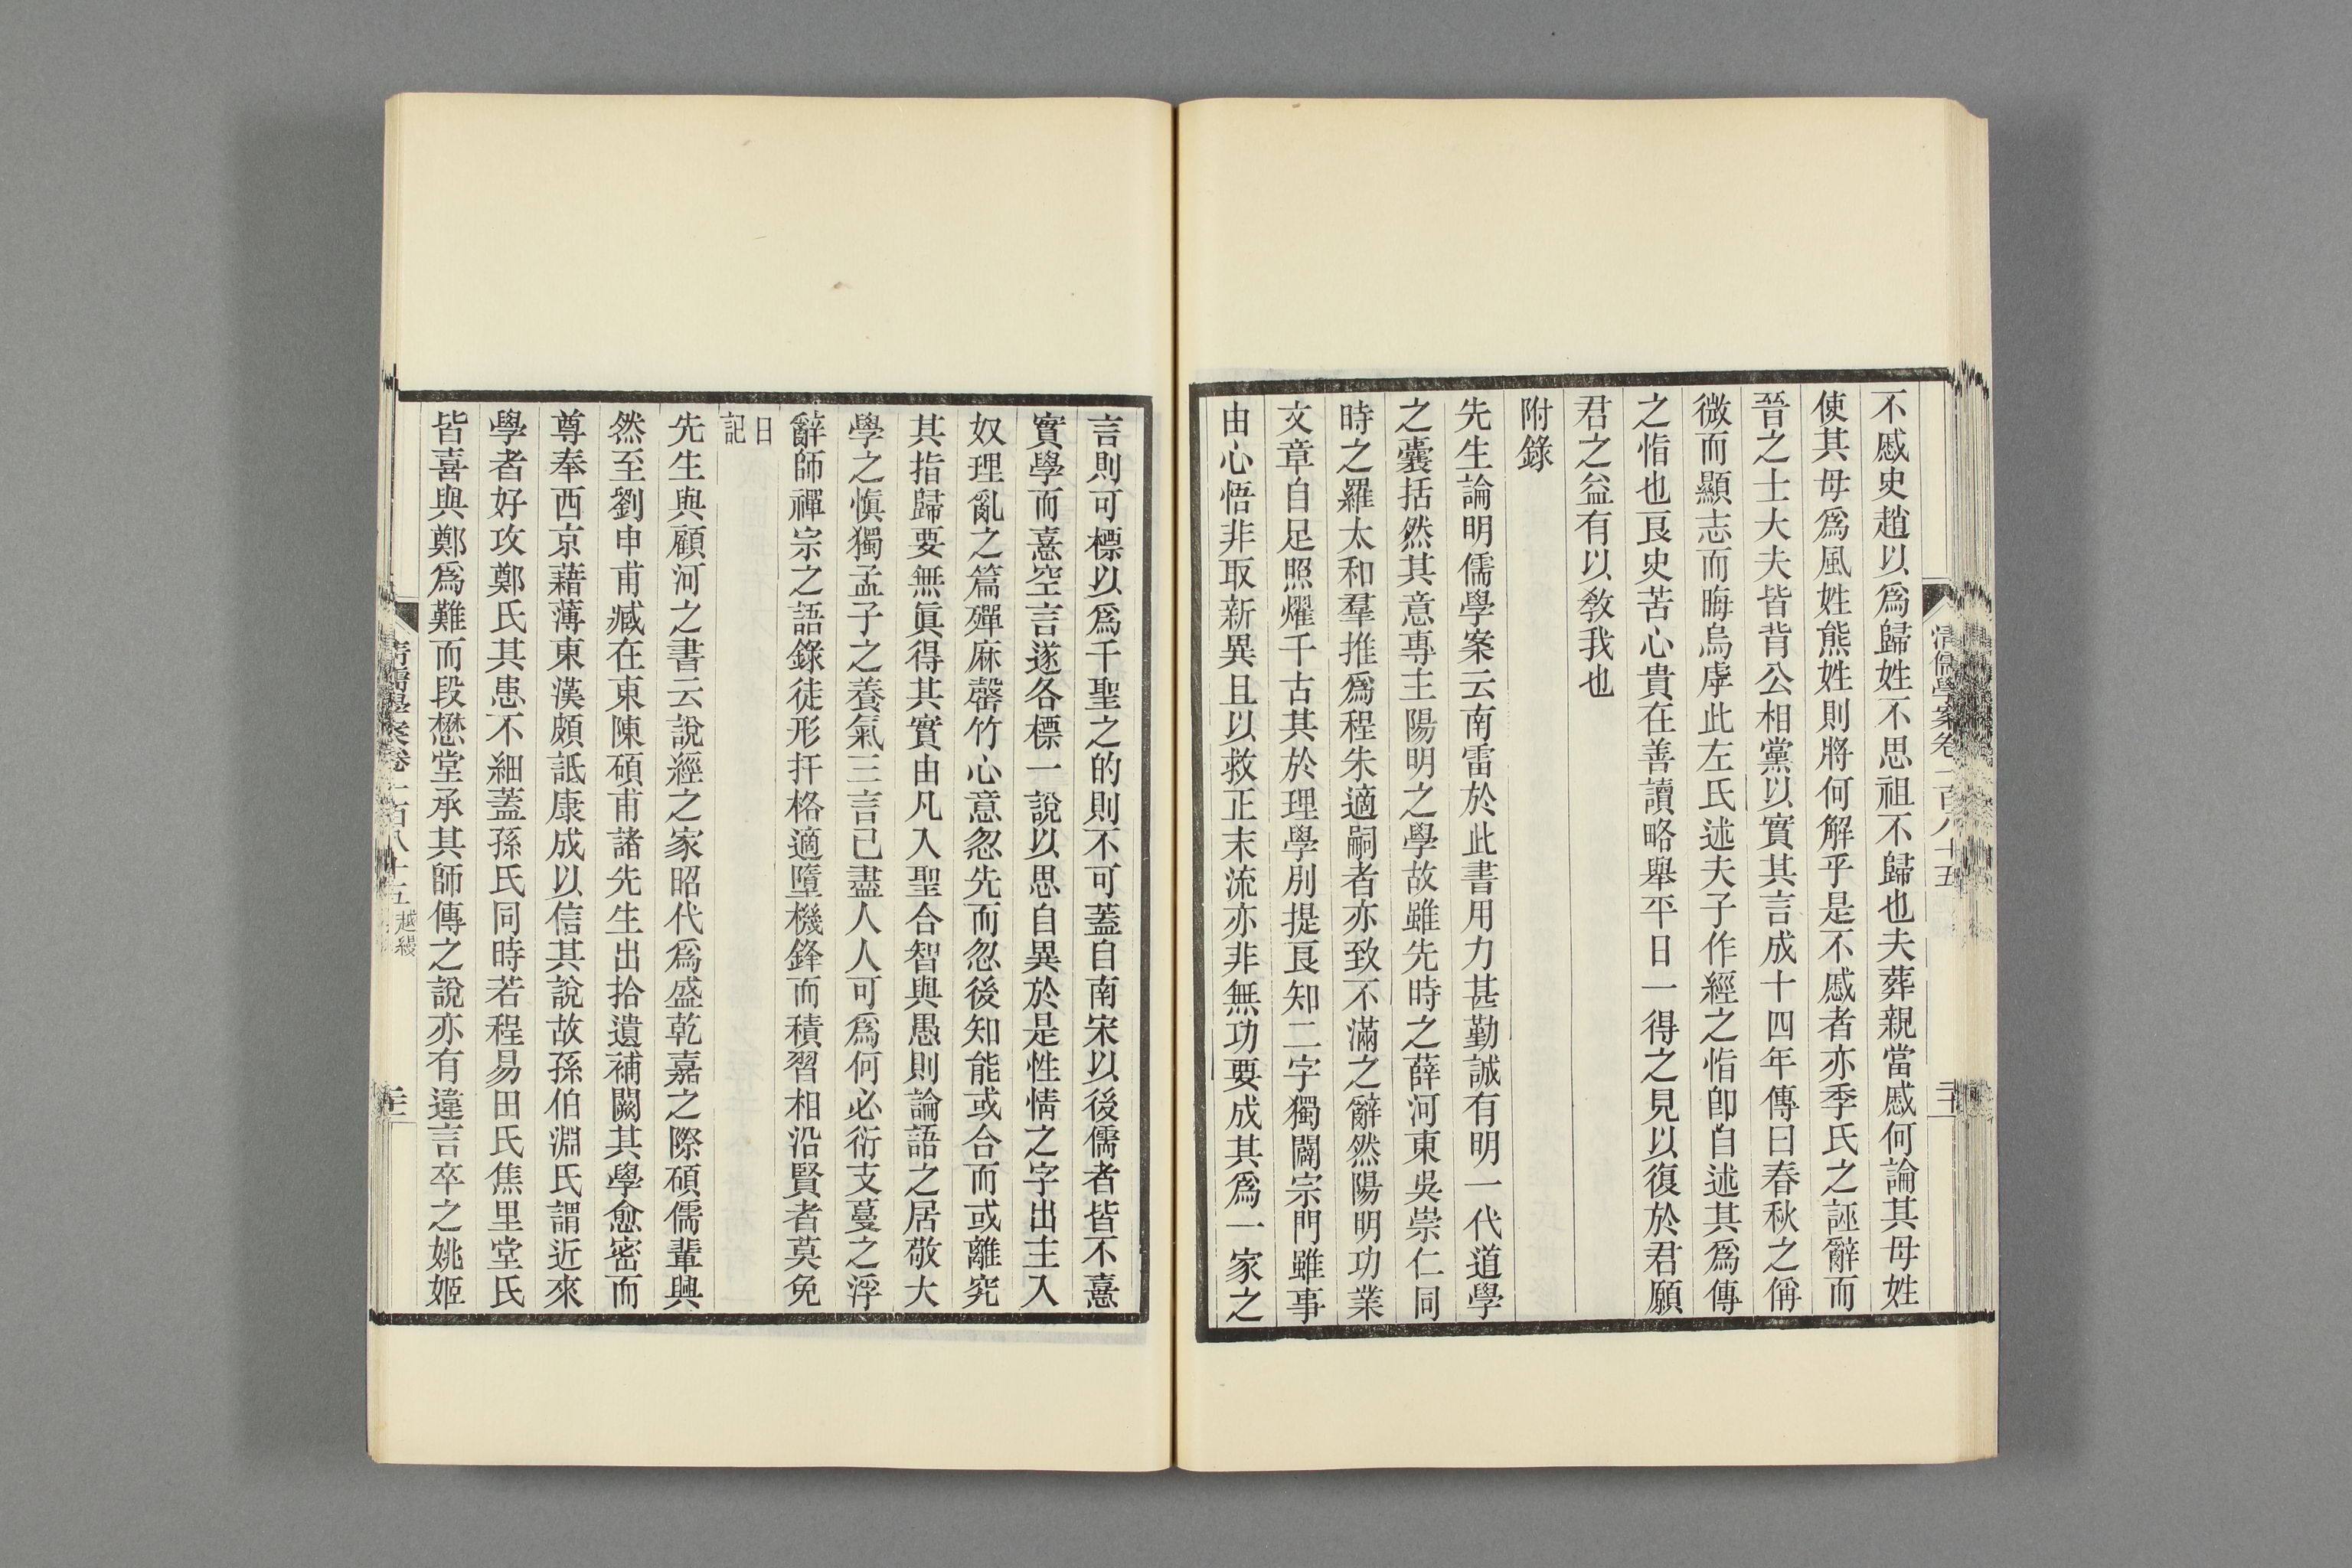 不慼史趙以爲歸姓不思祖不歸也夫葬親當慼何論其母姓
使其母爲風姓熊姓則將何解乎是不慼者亦季氏之誣辭而
晉之士大夫皆背公相黨以實其言成十四年傳曰春秋之偁
微而顯志而晦烏虖此左氏述夫子作經之恉卽自述其爲傳
之恉也良史苦心貴在善讀略舉平日一得之見以復於君願
君之益有以敎我也
附錄
先生論明儒學案云南雷於此書用力甚勤誠有明一代道學
之囊括然其意專主陽明之學故雖先時之薛河東吳崇仁同
時之羅太和羣推爲程朱適嗣者亦致不滿之辭然陽明功業
文章自足照燿千古其於理學別提良知二字獨闢宗門雖事
由心悟非取新異且以救正末流亦非無功要成其爲一家之
清儒學案卷一百八十五
三十
言則可標以爲千聖之的則不可蓋自南宋以後儒者皆不憙
實學而憙空言遂各標一說以思自異於是性情之字出主入
奴理亂之篇殫麻罄竹心意忽先而忽後知能或合而或離究
其指歸要無眞得其實由凡入聖合智與愚則論語之居敬大
學之愼獨孟子之養氣三言已盡人人可爲何必衍支蔓之浮
辭師禪宗之語錄徒形扞格適墮機鋒而積習相沿賢者莫免
日
記
先生與顧河之書云說經之家昭代爲盛乾嘉之際碩儒輩興
然至劉申甫臧在東陳碩甫諸先生出拾遺補闕其學愈密而
尊奉西京藉薄東漢頗詆康成以信其說故孫伯淵氏謂近來
學者好攻鄭氏其患不細蓋孫氏同時若程易田氏焦里堂氏
皆喜與鄭爲難而段懋堂承其師傳之說亦有違言卒之姚姬
清儒學案卷一百八十五 越縵